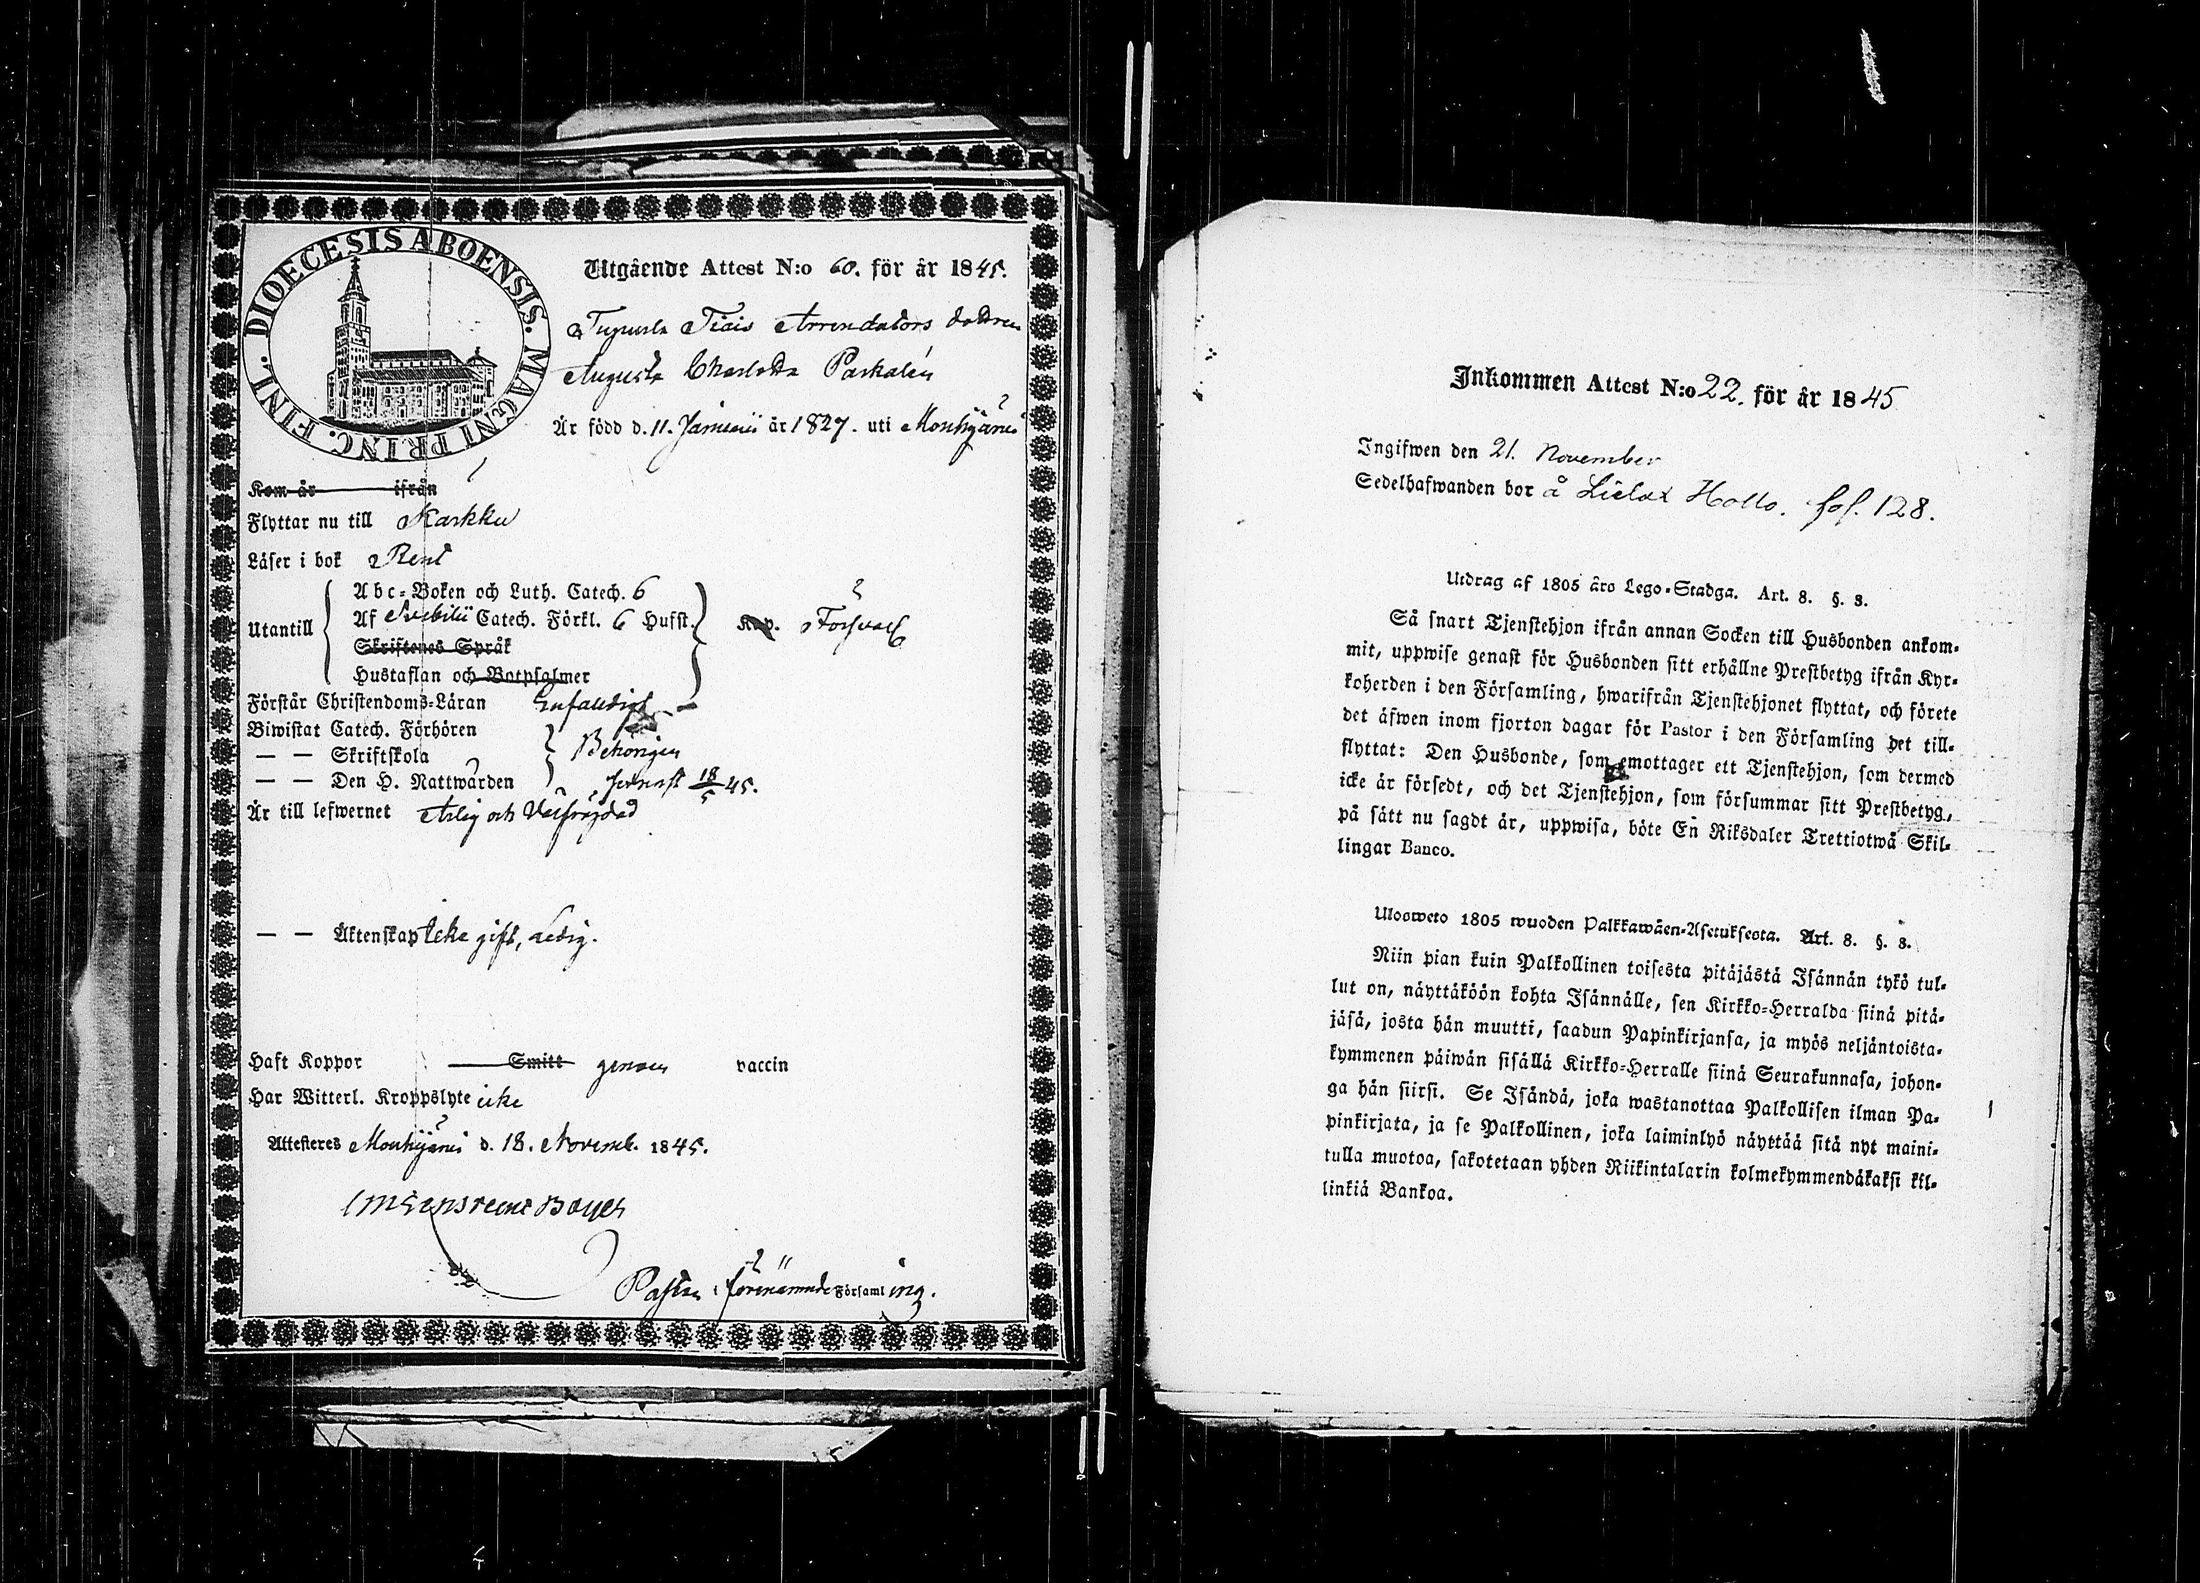 DIOECESIS ABOENSIS. MAGNI PRINC. FINL.
Utgående Attest N:o 60. för år 1845.
Arrendators dottren
Augusta Charlotta Parkalén
Är född d. 11. Januarii år 1827. uti Mouhijärvi
Kom år ifrån
Flyttar nu till Karkku
Läser i bok Rent
Utantill
Abc-Boken och Luth. Catech. 6
Af Svebilii Catech. Förkl. 6 Husst.
Skriftenes Språk
Hustaflan och Botpsalmer
Kap. Försvarl
Förstår Christendoms-Läran Enfaldigt
Biwistat Catech. Förhören
— — Skriftskola Behörigen
— — Den H. Nattwarden senast 18/5 45.
Är till lefwernet Ärlig och Välfrägdad
— — Äktenskap icke gift, ledig.
Haft Koppor Smitt genom vaccin
Har Witterl. Kroppslyte icke
Attesteres Mouhijärvi d. 18. Novemb. 1845.
Pastor i förenämnde Församling.
Inkommen Attest N:o 22. för år 1845
Ingifwen den 21. November
Sedelhafwanden bor å Lielax Hollo. fol. 128.
Utdrag af 1805 års Lego-Stadga. Art. 8. §. 3.
Så snart Tjenstehjon ifrån annan Socken till Husbonden ankom-
mit, uppwise genast för Husbonden sitt erhållne Prestbetyg ifrån Kyr-
koherden i den Församling, hwarifrån Tjenstehjonet flyttat, och förete
det äfwen inom fjorton dagar för Pastor i den Församling det till-
flyttat: Den Husbonde, som emottager ett Tjenstehjon, som dermed
icke är försedt, och det Tjenstehjon, som försummar sitt Prestbetyg,
på sätt nu sagdt är, uppwisa, böte En Riksdaler Trettiotwå Skil-
lingar Banco.
Ulosweto 1805 wuoden Palkkawäen-Asetuksesta. Art. 8. §. 3.
Niin pian kuin Palkollinen toisesta pitäjästä Isännän tykö tul-
lut on, näyttäköön kohta Isännälle, sen Kirkko-Herralda siinä pitä-
jäsä, josta hän muutti, saadun Papinkirjansa, ja myös neljäntoista-
kymmenen päiwän sisällä Kirkko-Herralle siinä Seurakunnasa, johon-
ga hän siirsi. Se Isändä, joka wastanottaa Palkollisen ilman Pa-
pinkirjata, ja se Palkollinen, joka laiminlyö näyttää sitä nyt maini-
tulla muotoa, sakotetaan yhden Riikintalarin kolmekymmendäkaksi kil-
linkiä Bankoa.